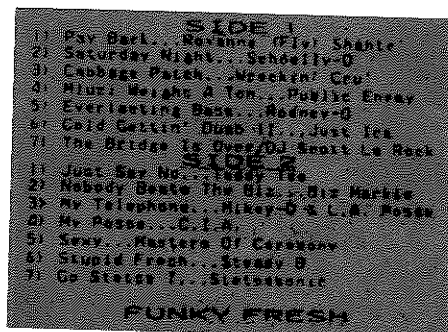 SIDE 1
1) Pay Back...Roxanne (Fly) Shante
2) Saturday Night...Schoolly-D
3) Cabbage Patch...Wreckin' Cru'
4) Miuzi Weighs A Ton...Public Enemy
5) Everlasting Bass...Rodney-O
6) Cold Gettin' Dumb II...Just Ice
7) The Bridge Is Over/DJ Scott La Rock
SIDE 2
1) Just Say No...
2) Nobody Beats The Biz...Biz Markie
3) My Telephone...Mikey-D & L.A. Posse
4) My Posse...C.I.A.
5) Sexy...Masters Of Ceremony
6) Stupid Fresh...Steady B
7) Go Stetsa I...Stetsasonic
FUNKY FRESH